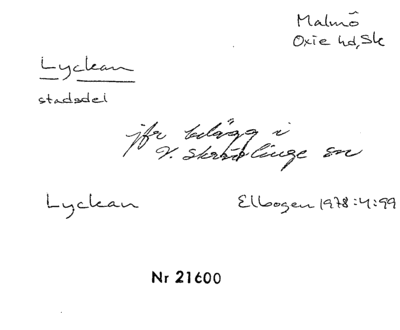 Malmö
Oxie hd, Sk
Lyckan
stadsdel
jfr belägg i
V. Skrävlinge sn
Lyckan Elbogen 1978:4:99
Nr 21600